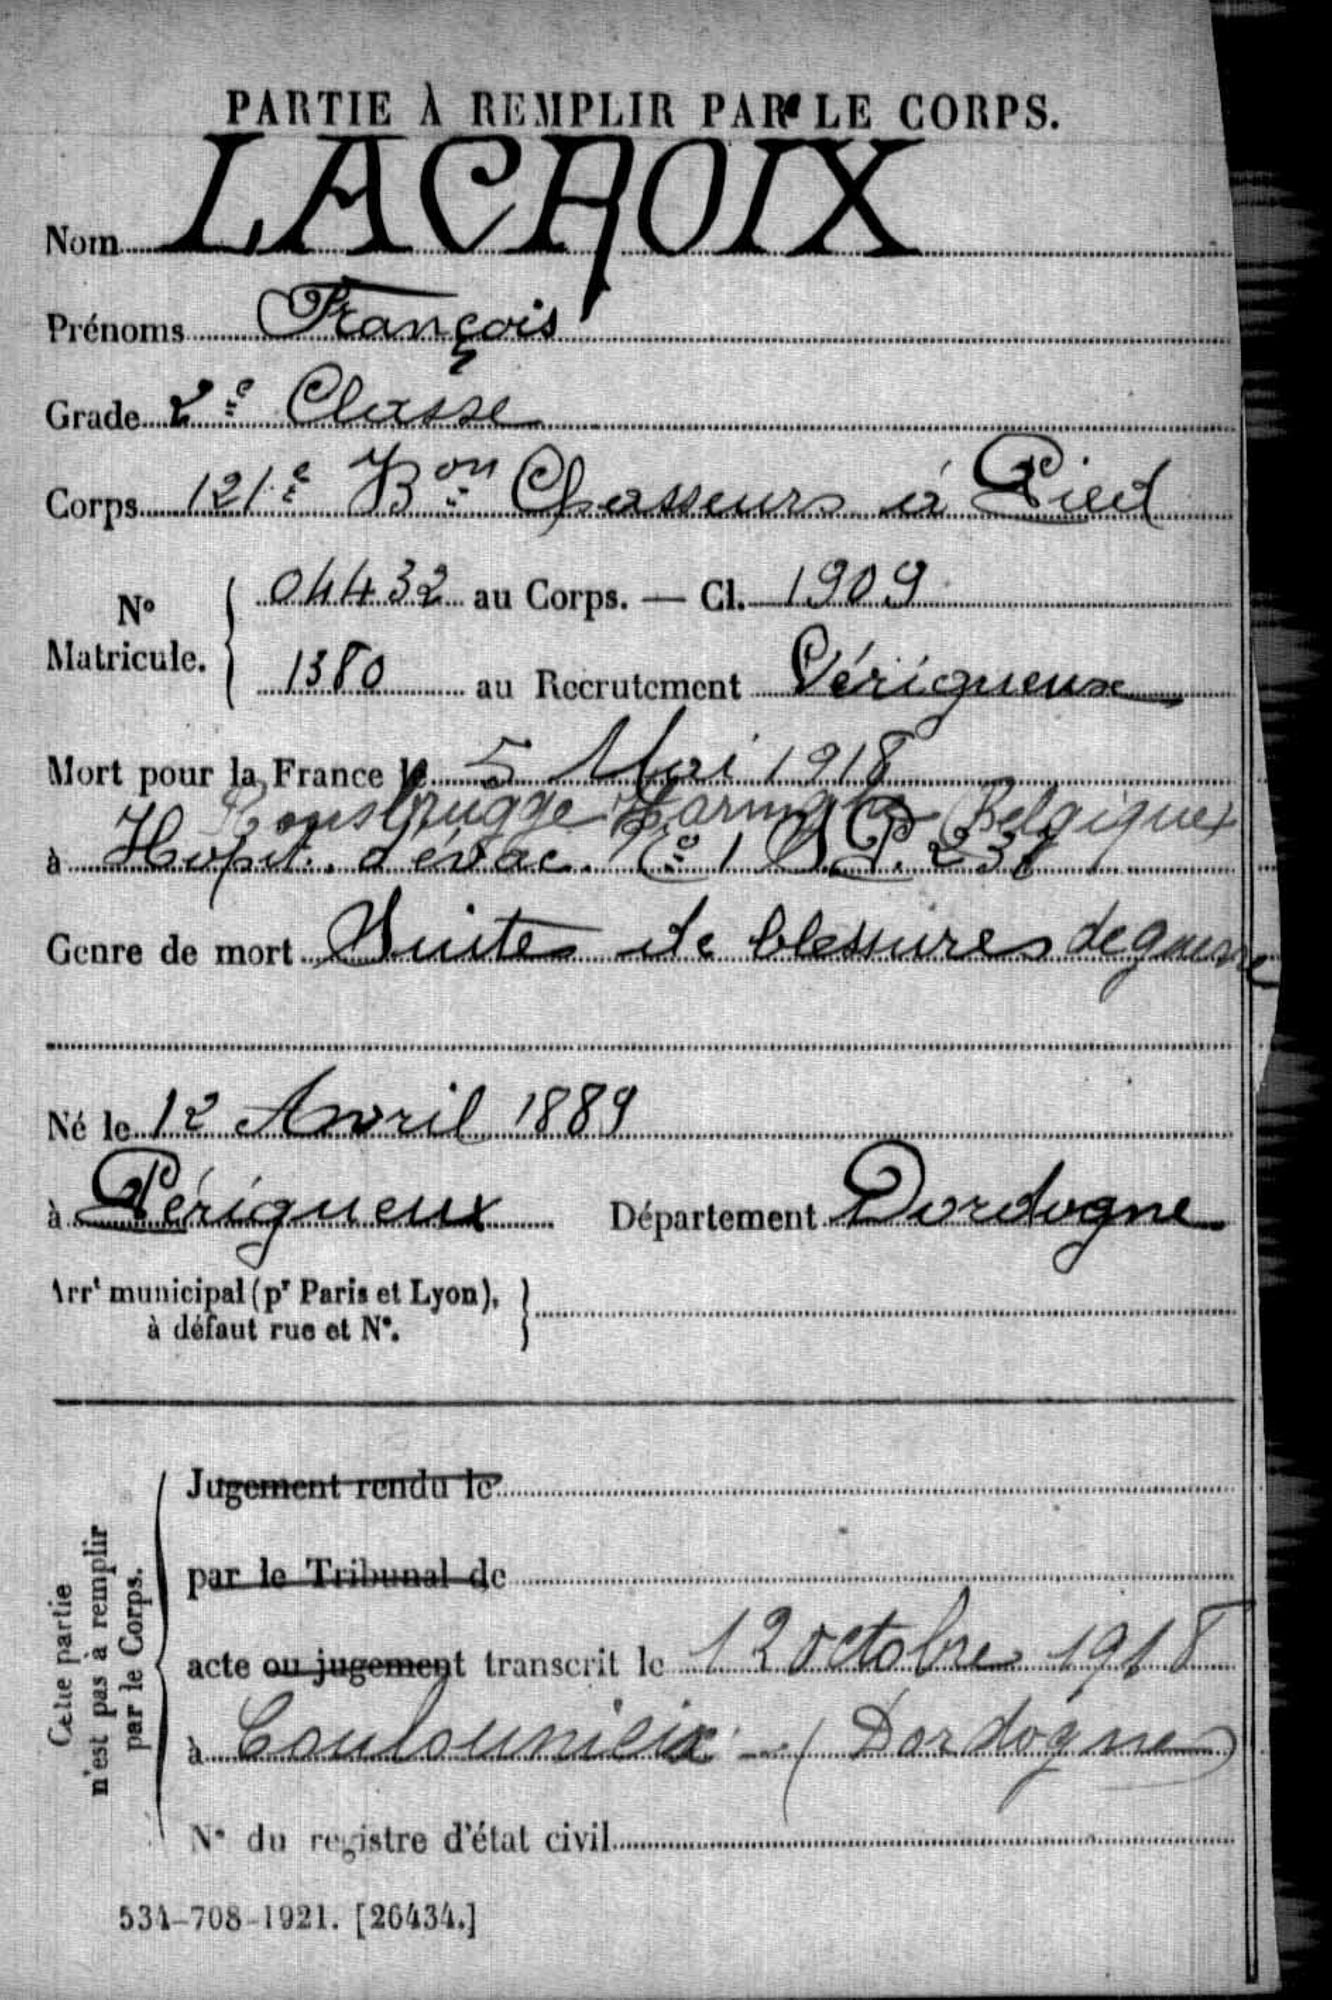 PARTIE À REMPLIR PAR LE CORPS.
Nom LACROIX
Prénoms François
Grade 2e Classe
Corps 121e Bon Chasseurs à Pied
No Matricule. { 04432 au Corps. — Cl. 1909
1380 au Recrutement Périgueux
Mort pour la France le 5 Mai 1918
Rousbrugge Haringhe (Belgique)
à Hopit. d'évac. No 1 S.P. 237
Genre de mort Suites de blessures de guerre
Né le 12 Avril 1889
à Périgueux Département Dordogne
Arrt municipal (pr Paris et Lyon), }
à défaut rue et No.
Cette partie
n'est pas à remplir
par le Corps.
Jugement rendu le
par le Tribunal de
acte ou jugement transcrit le 12 octobre 1918
à Coulounieix (Dordogne)
No du registre d'état civil
534-708-1921. [26434.]